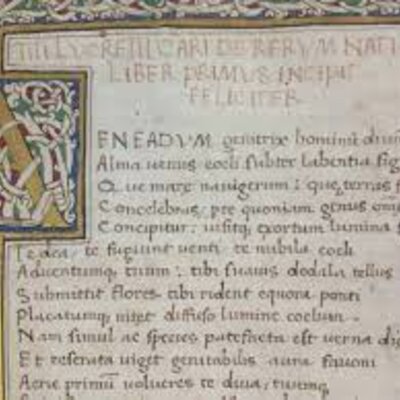 TITI LVCRETII CARI DE RERVM NATV
LIBER PRIMVS INCIPIT
FELICITER
AENEADVM genitrix hominū divu
Alma uenus coeli subter labentia sig
Que mare nauigerum: que terras f
Concelebras, per quonium genus om
Concipitur: uisitq, exortum lumina s
Te dea, te fugiunt uenti te nubila coeli
Aduentumq, tuum: tibi suauis dedala tellus
Submittit flores tibi rident equora ponti
Placatumq, nitet diffuso lumine coelum
Nam simul ac species patefacta est uerna die
Et reserata uiget genitabilis aura fauoni
Aerie primū uolucres te diua, tuumq,